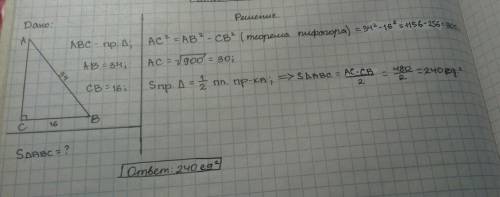 Дано:
A
ABC - пр. Δ;
AB = 34;
CB = 16;
34
C 16 B
SΔABC = ?
Решение
AC² = AB² - CB² (теорема пифагора) = 34² - 16² = 1156 - 256 = 900
AC = √900 = 30;
S пр. Δ = 1/2 пл. пр-ка; => SΔABC = AC·CB/2 = 480/2 = 240 ед²
Ответ: 240 ед²